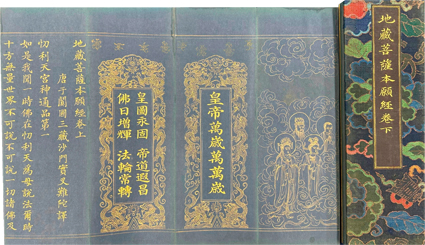 地藏菩薩本願經卷下
皇帝萬歲萬萬歲
皇圖永固 帝道遐昌
佛日增輝 法輪常轉
地藏菩薩本願經卷上
唐于闐國三藏沙門實叉難陀譯
忉利天宮神通品第一
如是我聞一時佛在忉利天為母說法爾時
十方無量世界不可說不可說一切諸佛及